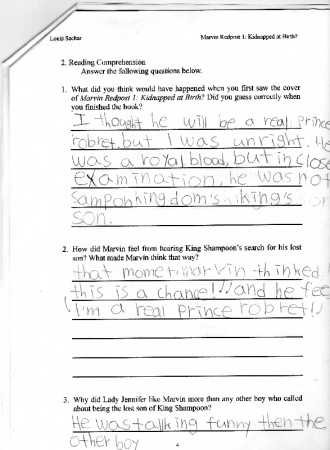 Louis Sachar
Marvin Redpost 1: Kidnapped at Birth?
2. Reading Comprehension
Answer the following questions below.
1. What did you think would have happened when you first saw the cover
of Marvin Redpost 1: Kidnapped at Birth? Did you guess correctly when
you finished the book?
I thought he will be a real Prince
robret. but I was unright. He
was a royal blood, but in close
examination, he was not
samponkingdom's king's or
son.
2. How did Marvin feel from hearing King Shampoon's search for his lost
son? What made Marvin think that way?
that momet, marvin thinked
this is a chance!!! and he fee
I'm a real prince robret!!
3. Why did Lady Jennifer like Marvin more than any other boy who called
about being the lost son of King Shampoon?
He was talking funny then the
other boy